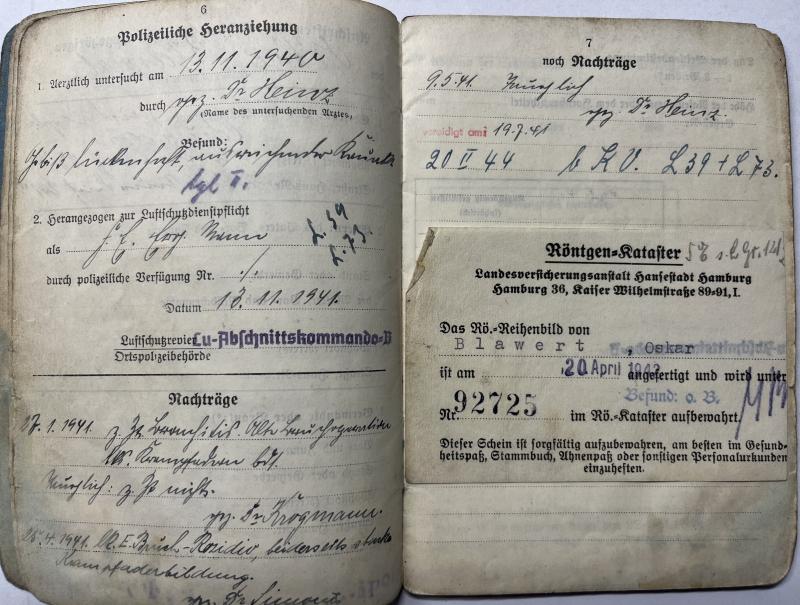 6
Polizeiliche Heranziehung
1. Aerztlich untersucht am 13.11.1940
durch gez. Dr Heinz
(Name des untersuchenden Arztes)
Befund:
Gebiß lückenhaft, ausreichender
tgl II.
2. Herangezogen zur Luftschutzdienstpflicht
L 39
L 73
als
durch polizeiliche Verfügung Nr. ./.
Datum 13.11.1941.
Luftschutzrevier Lu-Abschnittskommando-
Ortspolizeibehörde
Nachträge
27.1.1941. z. Zt. Bronchitis. Alte Bruchoperation
Krampfadern bds.
Tauglich: z. Zt. nicht.
gez. Dr Krogmann.
25.4.1941. Bruch-Rezidiv, beiderseits starke
Krampfaderbildung.
gez. Dr Simons
7
noch Nachträge
9.5.41. Tauglich
gez. Dr Heinz.
vereidigt am: 19.7.41
20 II 44 b K.V. L 39 + L 73.
Röntgen-Kataster
Landesversicherungsanstalt Hansestadt Hamburg
Hamburg 36, Kaiser Wilhelmstraße 89-91, I.
Das Rö.-Reihenbild von
Blawert, Oskar
ist am 20. April 1942 angefertigt und wird unter
Befund: o. B.
Nr. 92725 im Rö.-Kataster aufbewahrt.
Dieser Schein ist sorgfältig aufzubewahren, am besten im Gesund-
heitspaß, Stammbuch, Ahnenpaß oder sonstigen Personalurkunden
einzuheften.